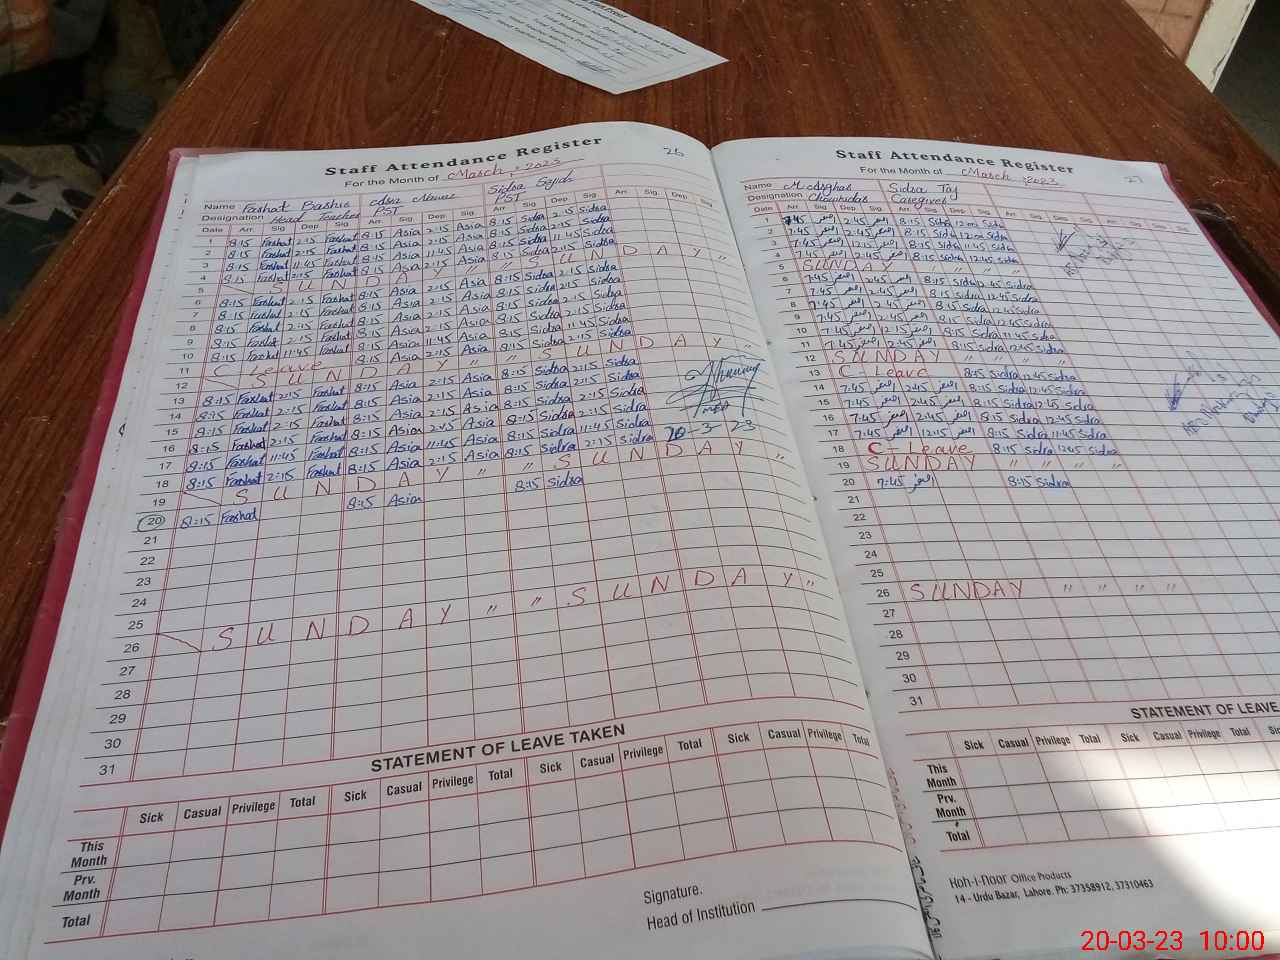 Staff Attendance Register 26
For the Month of March : 2023
Name Farhat Bashir Sidra Sajid
Designation Head Teacher PST PST
Date Arr. Sig. Dep. Sig. Arr. Sig. Dep. Sig. Arr. Sig. Dep. Sig. Arr. Sig. Dep. Sig.
1 8:15 Farhat 2:15 Farhat 8:15 Asia 2:15 Asia 8:15 Sidra 2:15 Sidra
2 8:15 Farhat 2:15 Farhat 8:15 Asia 2:15 Asia 8:15 Sidra 2:15 Sidra
3 8:15 Farhat 11:45 Farhat 8:15 Asia 11:45 Asia 8:15 Sidra 11:45 Sidra
4 8:15 Farhat 2:15 Farhat 8:15 Asia 2:15 Asia 8:15 Sidra 2:15 Sidra
5 SUNDAY " " SUNDAY "
6 8:15 Farhat 2:15 Farhat 8:15 Asia 2:15 Asia 8:15 Sidra 2:15 Sidra
7 8:15 Farhat 2:15 Farhat 8:15 Asia 2:15 Asia 8:15 Sidra 2:15 Sidra
8 8:15 Farhat 2:15 Farhat 8:15 Asia 2:15 Asia 8:15 Sidra 2:15 Sidra
9 8:15 Farhat 2:15 Farhat 8:15 Asia 2:15 Asia 8:15 Sidra 2:15 Sidra
10 8:15 Farhat 11:45 Farhat 8:15 Asia 11:45 Asia 8:15 Sidra 11:45 Sidra
11 C Leave 8:15 Asia 2:15 Asia 8:15 Sidra 2:15 Sidra
12 SUNDAY " " SUNDAY "
13 8:15 Farhat 2:15 Farhat 8:15 Asia 2:15 Asia 8:15 Sidra 2:15 Sidra
14 8:15 Farhat 2:15 Farhat 8:15 Asia 2:15 Asia 8:15 Sidra 2:15 Sidra
15 8:15 Farhat 2:15 Farhat 8:15 Asia 2:15 Asia 8:15 Sidra 2:15 Sidra
16 8:15 Farhat 2:15 Farhat 8:15 Asia 2:15 Asia 8:15 Sidra 2:15 Sidra
17 8:15 Farhat 11:45 Farhat 8:15 Asia 11:45 Asia 8:15 Sidra 11:45 Sidra
18 8:15 Farhat 2:15 Farhat 8:15 Asia 2:15 Asia 8:15 Sidra 2:15 Sidra
20-3-23
19 SUNDAY " " SUNDAY "
20 8:15 Farhat 8:15 Asia 8:15 Sidra
21
22
23
24
25
26 SUNDAY " " SUNDAY "
27
28
29
30
31
STATEMENT OF LEAVE TAKEN
Sick Casual Privilege Total Sick Casual Privilege Total Sick Casual Privilege Total
This Month
Prv. Month
Total
Signature.
Head of Institution
Staff Attendance Register 27
For the Month of March : 2023
Name M Asghar Sidra Taj
Designation Chowkidar Caregiver
Date Arr. Sig. Dep. Sig. Arr. Sig. Dep. Sig. Arr. Sig. Dep. Sig. Arr. Sig. Dep. Sig.
1 7:45 اصغر 2:45 اصغر 8:15 Sidra Sidra
2 7:45 اصغر 2:45 اصغر 8:15 Sidra Sidra
3 7:45 اصغر 12:15 اصغر 8:15 Sidra 11:45 Sidra
4 7:45 اصغر 2:45 اصغر 8:15 Sidra 12:45 Sidra
5 SUNDAY " " "
6 7:45 اصغر 2:45 اصغر 8:15 Sidra 12:45 Sidra
7 7:45 اصغر 2:45 اصغر 8:15 Sidra 12:45 Sidra
8 7:45 اصغر 2:45 اصغر 8:15 Sidra 12:45 Sidra
9 7:45 اصغر 2:45 اصغر 8:15 Sidra 12:45 Sidra
10 7:45 اصغر 12:15 اصغر 8:15 Sidra 11:45 Sidra
11 7:45 اصغر 2:45 اصغر 8:15 Sidra 12:45 Sidra
12 SUNDAY " " " "
13 C - Leave 8:15 Sidra 12:45 Sidra
14 7:45 اصغر 2:45 اصغر 8:15 Sidra 12:45 Sidra
15 7:45 اصغر 2:45 اصغر 8:15 Sidra 12:45 Sidra
16 7:45 اصغر 2:45 اصغر 8:15 Sidra 12:45 Sidra
17 7:45 اصغر 12:15 اصغر 8:15 Sidra 11:45 Sidra
18 C - Leave 8:15 Sidra 12:45 Sidra
19 SUNDAY " " " "
20 7:45 اصغر 8:15 Sidra
21
22
23
24
25
26 SUNDAY " " " "
27
28
29
30
31
STATEMENT OF LEAVE
Sick Casual Privilege Total Sick Casual Privilege Total
This Month
Prv. Month
Total
Koh-i-noor Office Products
14 - Urdu Bazar, Lahore. Ph: 37358912, 37310463
20-03-23 10:00